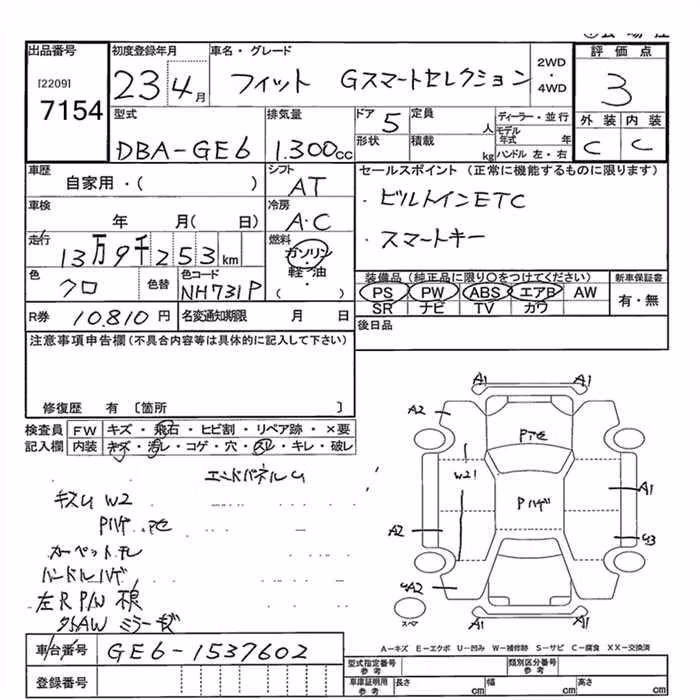 出品番号 初度登録年月 車名・グレード 2WD・4WD 評価点
[2209] 7154 23 4月 フィット Gスマートセレクション 3
型式 排気量 ドア 5 定員 人 ディーラー・並行 外装 内装
モデル年式 年
DBA-GE6 1.300cc 形状 積載 kg ハンドル 左・右 C C
車歴 シフト セールスポイント (正常に機能するものに限ります)
自家用・( ) AT
・ビルトインETC
車検 冷房
年 月( 日) A・C
・スマートキー
走行 燃料
13万9千253km ガソリン・軽油 ( )
装備品 (純正品に限り〇をつけてください) 新車保証書
色 クロ 色替 色コード NH731P
PS PW ABS エアB AW 有・無
SR ナビ TV カワ
R券 10.810円 名変通知期限 月 日 後日品
注意事項申告欄(不具合内容等は具体的に記入して下さい)
修復歴 有 〔箇所 〕
検査員 FW キズ・飛石・ヒビ割・リペア跡・×要
記入欄 内装 キズ・汚レ・コゲ・穴・スレ・キレ・破レ
エンドパネルU
キズU W2
Pハゲ
カーペット
ハンドルハゲ
左R P/W 不良
外SAW ミラーキズ
A1 A1
A2
Pアセ
W21
Pハゲ
A1
A2
U3
UA2
スペア
A1 A1
車台番号 GE6-1537602
A-キズ E-エクボ U-凹み W-補修跡 S-サビ C-腐食 XX-交換済
登録番号
型式指定番号 参考 類別区分番号 参考
車庫証明用 参考 長さ cm 幅 cm 高さ cm